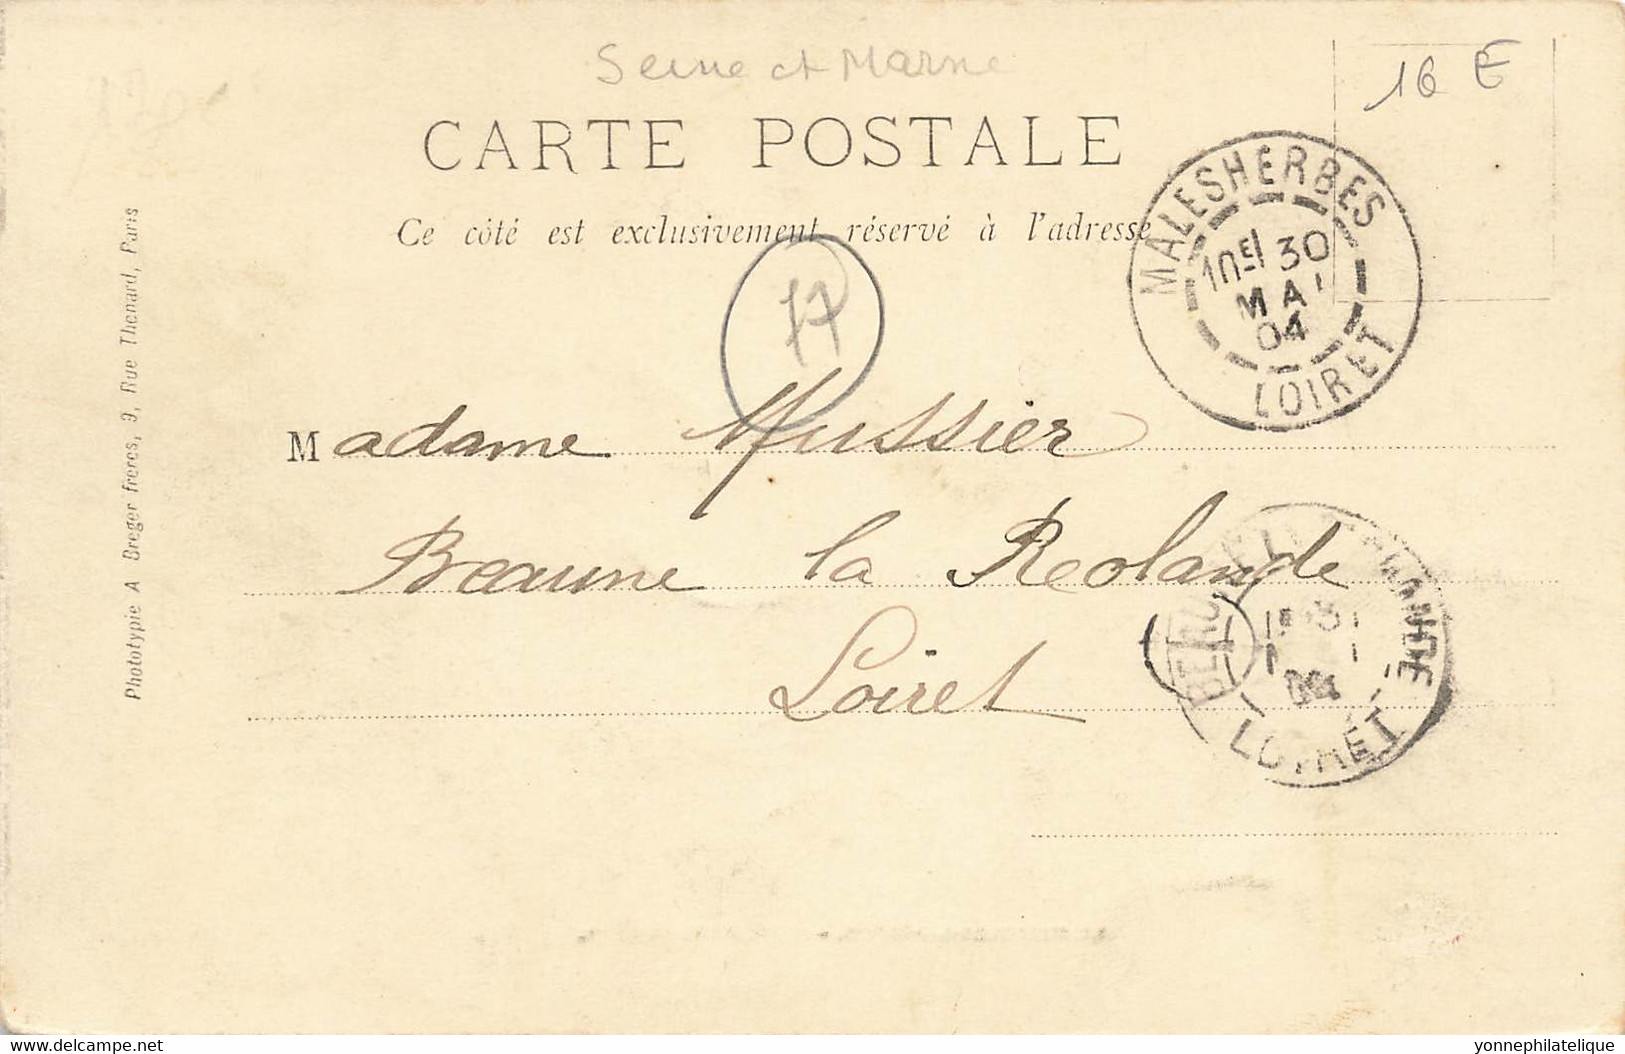 Seine et Marne
16 E
CARTE POSTALE
Ce côté est exclusivement réservé à l'adresse
MALESHERBES
1RE 30
MAI
04
LOIRET
Madame Mussier
Beaune la Reolande
Loiret
BEAUNE LA ROLANDE
04
LOIRET
Phototypie A Breger frères, 9, Rue Thenard, Paris
Delcampe.net
yonnephilatelique